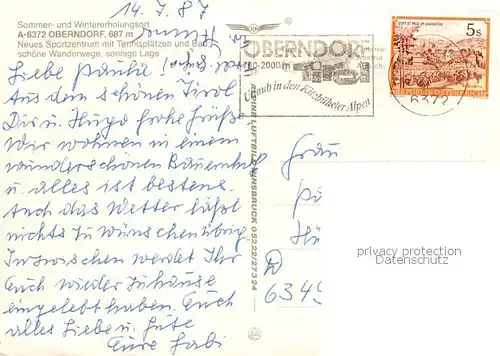 14.7.87
Sommer- und Wintererholungsort
A-6372 OBERNDORF, 687 m
Neues Sportzentrum mit Tennisplätzen und Bad,
schöne Wanderwege, sonnige Lage
Liebe Paula!
Aus dem schönen Tirol
Dir u. Hugo frohe Grüße
Wir wohnen in einem
wunderschönen Bauernhof
u. alles ist bestens.
Auch das Wetter läßt
nichts zu wünschen übrig
Inzwischen werdet Ihr
Euch wieder Zuhause
eingelebt haben. Euch
alles Liebe u. Gute
Eure Gabi
LUFTBILD INNSBRUCK 05222/27324
OBERNDORF
700-2000 m
Tirol
Urlaub in den Kitzbüheler Alpen
6372
STIFT ST. PAUL IM LAVANTTAL
5 S
REPUBLIK ÖSTERREICH
Frau
D
6349
privacy protection
Datenschutz